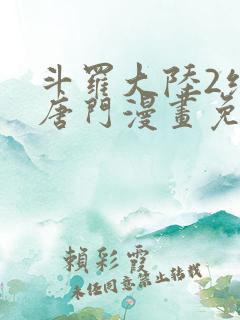 斗羅大陸2絕
唐門漫畫免
賴彩霞
未經同意禁止轉載